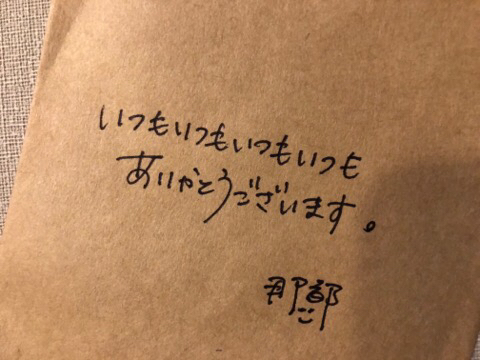 いつもいつもいつもいつも
ありがとうございます。
那部